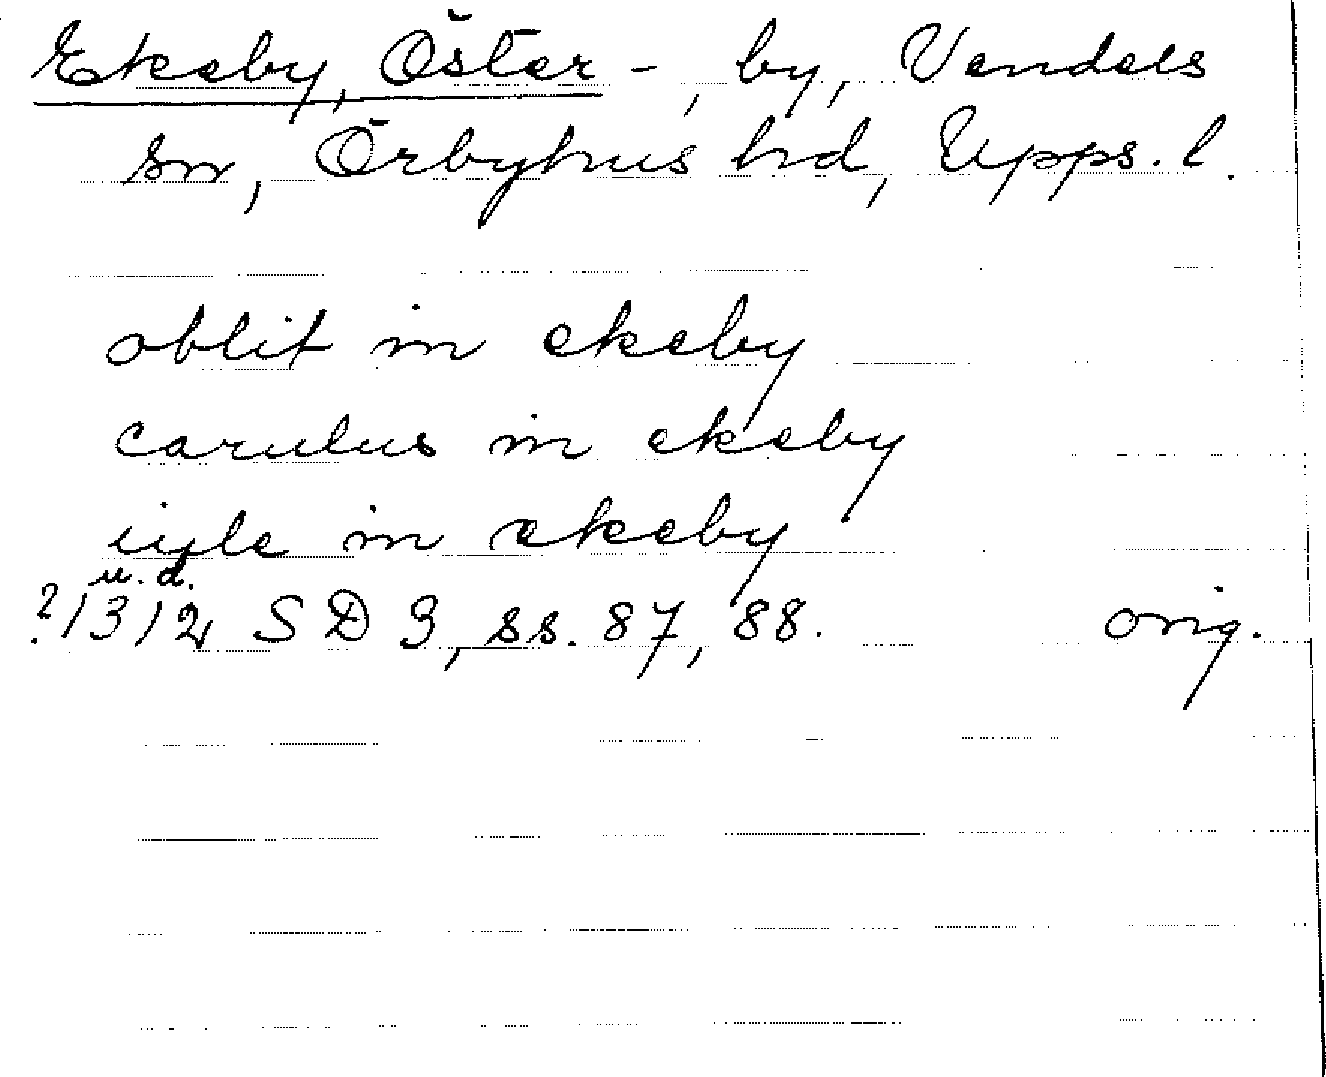 Ekeby, Öster - , by, Vendels
sn, Örbyhus hd, Upps. l.
oblit in ekeby
carulus in ekeby
in ekeby
u. d.
?/312 SD 3, ss. 87, 88. orig.